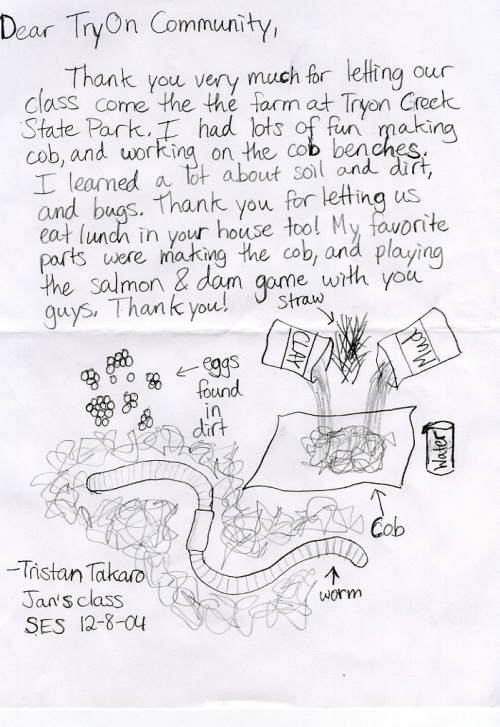 Dear TryOn Community,
Thank you very much for letting our
class come the the farm at Tryon Creek
State Park. I had lots of fun making
cob, and working on the cob benches.
I learned a lot about soil and dirt,
and bugs. Thank you for letting us
eat lunch in your house too! My favorite
parts were making the cob, and playing
the salmon & dam game with you
guys. Thank you!
straw
CLAY
Mud
eggs
found
in
dirt
Water
Cob
worm
-Tristan Takaro
Jan's class
SES 12-8-04